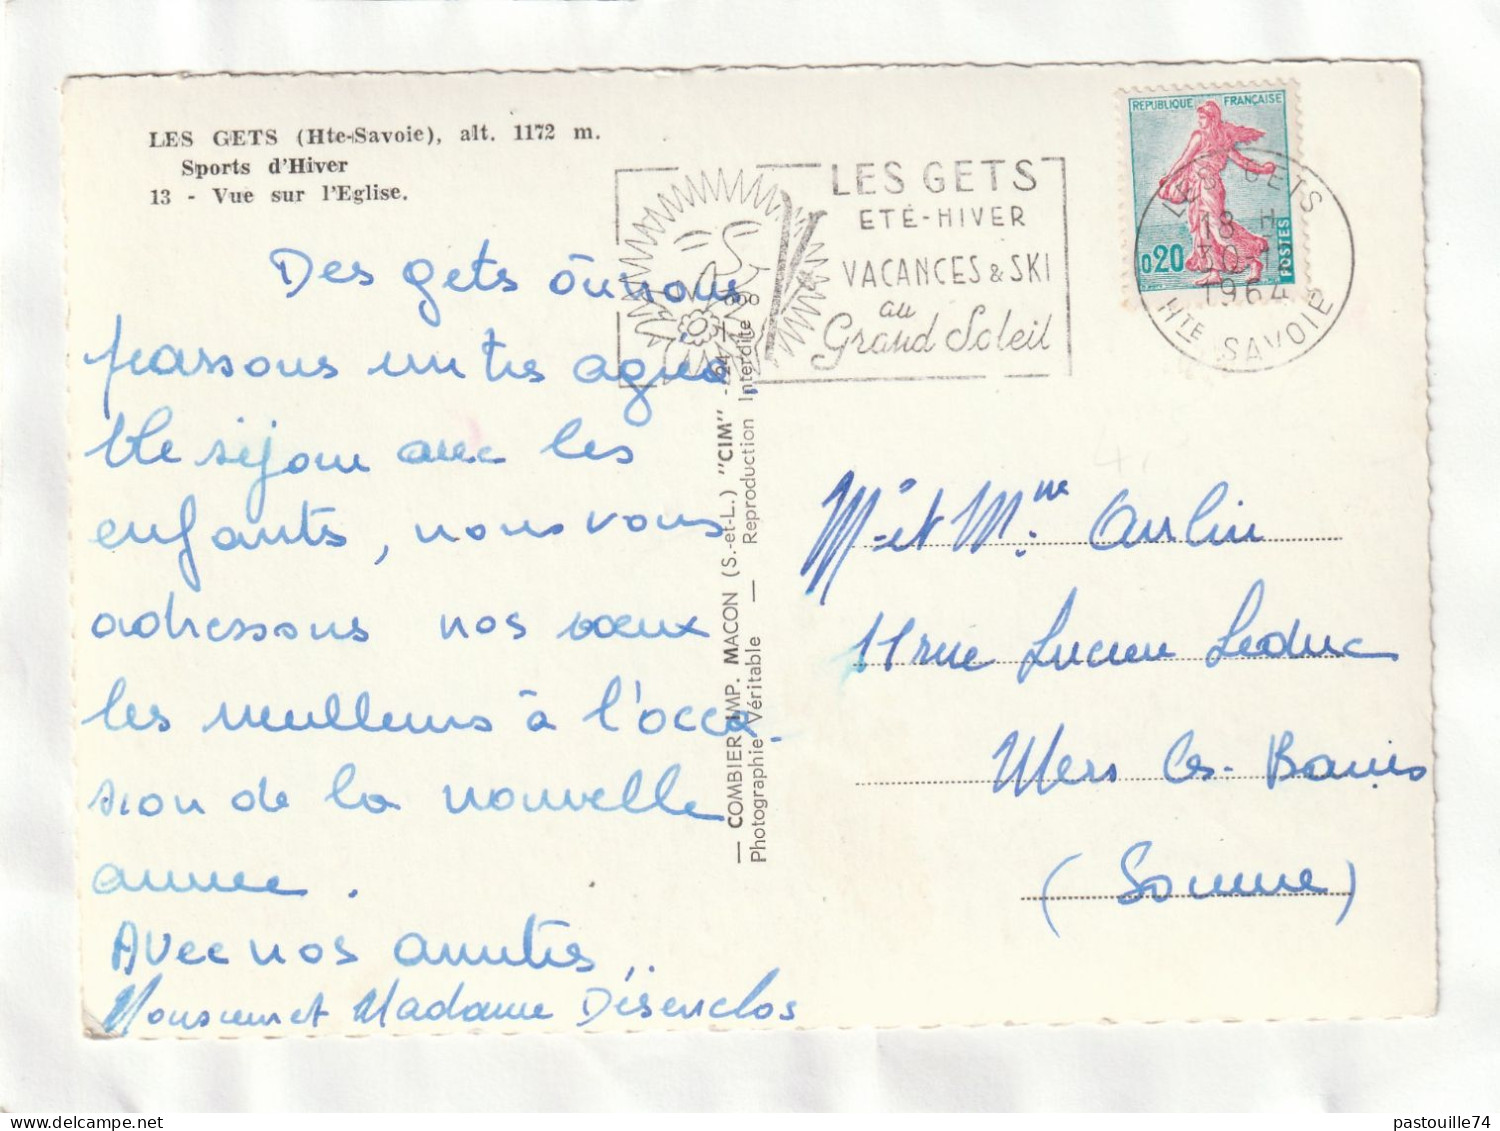 LES GETS (Hte-Savoie), alt. 1172 m.
Sports d'Hiver
13 - Vue sur l'Eglise.
Des gets où nous
passons un très agréa
ble séjour avec les
enfants, nous vous
adressons nos vœux
les meilleurs à l'occa-
sion de la nouvelle
année.
Avec nos amitiés,
Monsieur et Madame Désenclos
— COMBIER IMP. MACON (S.-et-L.) "CIM" -
Photographie Véritable — Reproduction Interdite
LES GETS
ETÉ-HIVER
VACANCES & SKI
au
Grand Soleil
REPUBLIQUE FRANÇAISE
0,20
POSTES
LES GETS
18 H
30 - 1
1964
HTE SAVOIE
M. et Mme Aulin
11 rue Lucien Leduc
Mers les-Bains
(Somme)
pastouille74